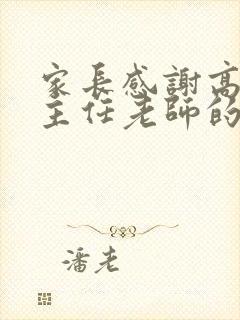 家長感謝高
主任老師的
潘老